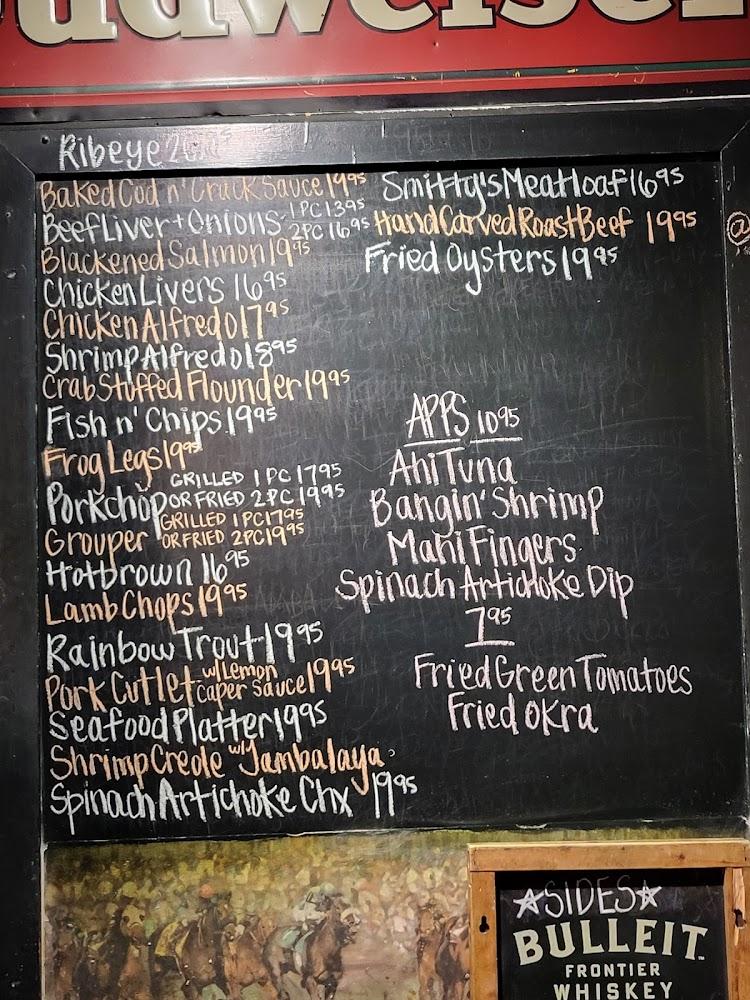 Budweiser
Ribeye
Baked Cod n' Crack Sauce 19 95
Beef Liver + Onions 1 PC 13 95
2 PC 16 95
Blackened Salmon 19 95
Chicken Livers 16 95
Chicken Alfredo 17 95
Shrimp Alfredo 18 95
Crab Stuffed Flounder 19 95
Fish n' Chips 19 95
Frog Legs 19 95
Porkchop GRILLED 1 PC 17 95
OR FRIED 2 PC 19 95
Grouper GRILLED 1 PC 17 95
OR FRIED 2 PC 19 95
Hotbrown 16 95
Lamb Chops 19 95
Rainbow Trout 19 95
Pork Cutlet w/ Lemon
caper sauce 19 95
Seafood Platter 19 95
Shrimp Creole w/ Jambalaya
Spinach Artichoke Chx 19 95
Smitty's Meatloaf 16 95
Hand Carved Roast Beef 19 95
Fried Oysters 19 95
APPS 10 95
Ahi Tuna
Bangin' Shrimp
Mahi Fingers
Spinach Artichoke Dip
7 95
Fried Green Tomatoes
Fried Okra
@
SIDES
BULLEIT
FRONTIER
WHISKEY